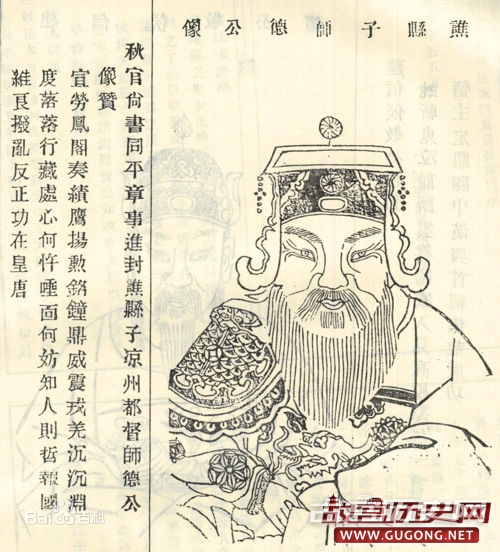 譙縣子師德公像
秋官尚書同平章事進封譙縣子凉州都督師德公
像贊
宣勞鳳閣奏績鷹揚勲銘鐘鼎威震戎羌沉沉淵
度落落行藏處心何忤唾面何妨知人則哲報國
維良撥亂反正功在皇唐
Baidu百科
故宫历史网
WWW.GUGONG.NET